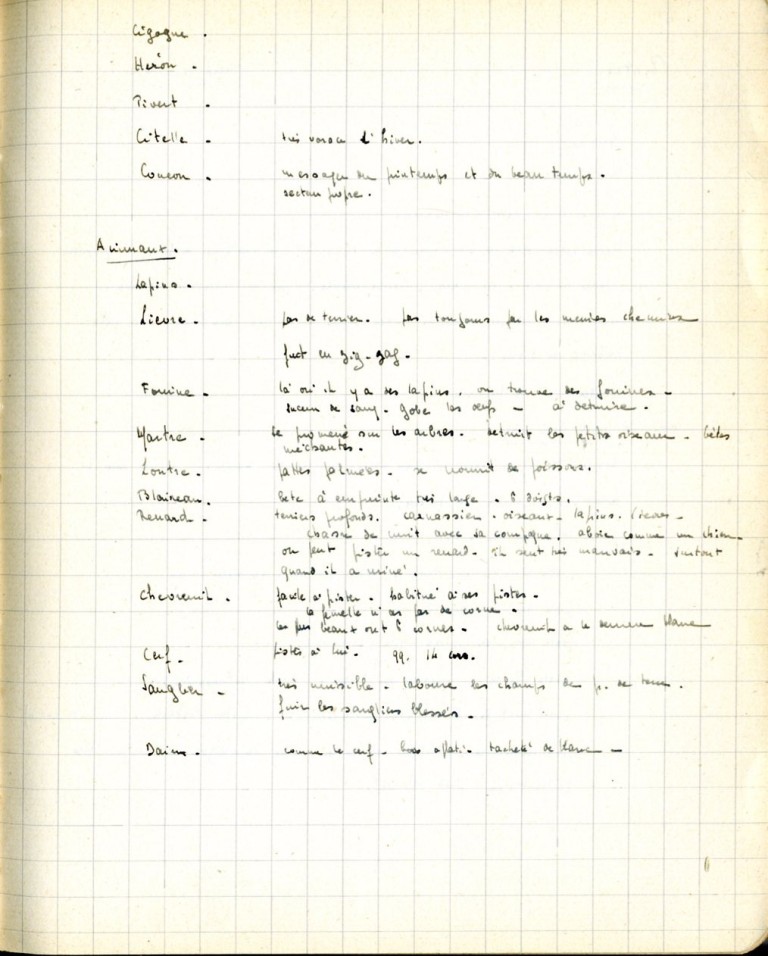 Cigogne.
Héron.
Pivert.
Citelle. très vorace l'hiver.
Coucou. messager du printemps et du beau temps.
secteur propre.
Animaux.
Lapins.
Lièvre. pas de terrier. pas toujours par les mêmes chemins
fuit en zig-zag.
Fouine. là où il y a des lapins, on trouve des fouines -
suceur de sang. gobe les œufs - à détruire.
Martre. se promène sur les arbres. détruit les petits oiseaux. bêtes
méchantes.
Loutre. pattes palmées. se nourrit de poissons.
Blaireau. bête à empreinte très large. 5 doigts.
Renard. terriers profonds. carnassier. oiseaux. lapins. lièvres -
chasse de nuit avec sa compagne. aboie comme un chien
on peut pister un renard. il sent très mauvais. surtout
quand il a uriné.
Chevreuil. facile à pister. habitué à ses pistes.
la femelle n'a pas de corne.
les plus beaux ont 6 cornes. chevreuil a le derrière blanc
Cerf. pistes à lui. 14 cors.
Sanglier - très nuisible. laboure les champs de p. de terre.
fuir les sangliers blessés.
Daim. comme le cerf. bois aplati. tacheté de blanc -